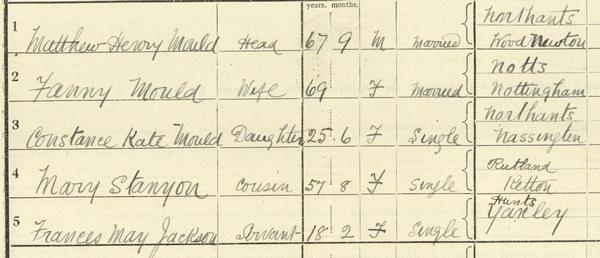 years. months.
1 Matthew Henry Mould Head 67 9 M Married Northants Wood Newton
2 Fanny Mould Wife 69 F Married Notts Nottingham
3 Constance Kate Mould Daughter 25 6 F Single Northants Nassington
4 Mary Stanyon Cousin 57 8 F Single Rutland Ketton
5 Frances May Jackson Servant 18 2 F Single Hunts Yaxley